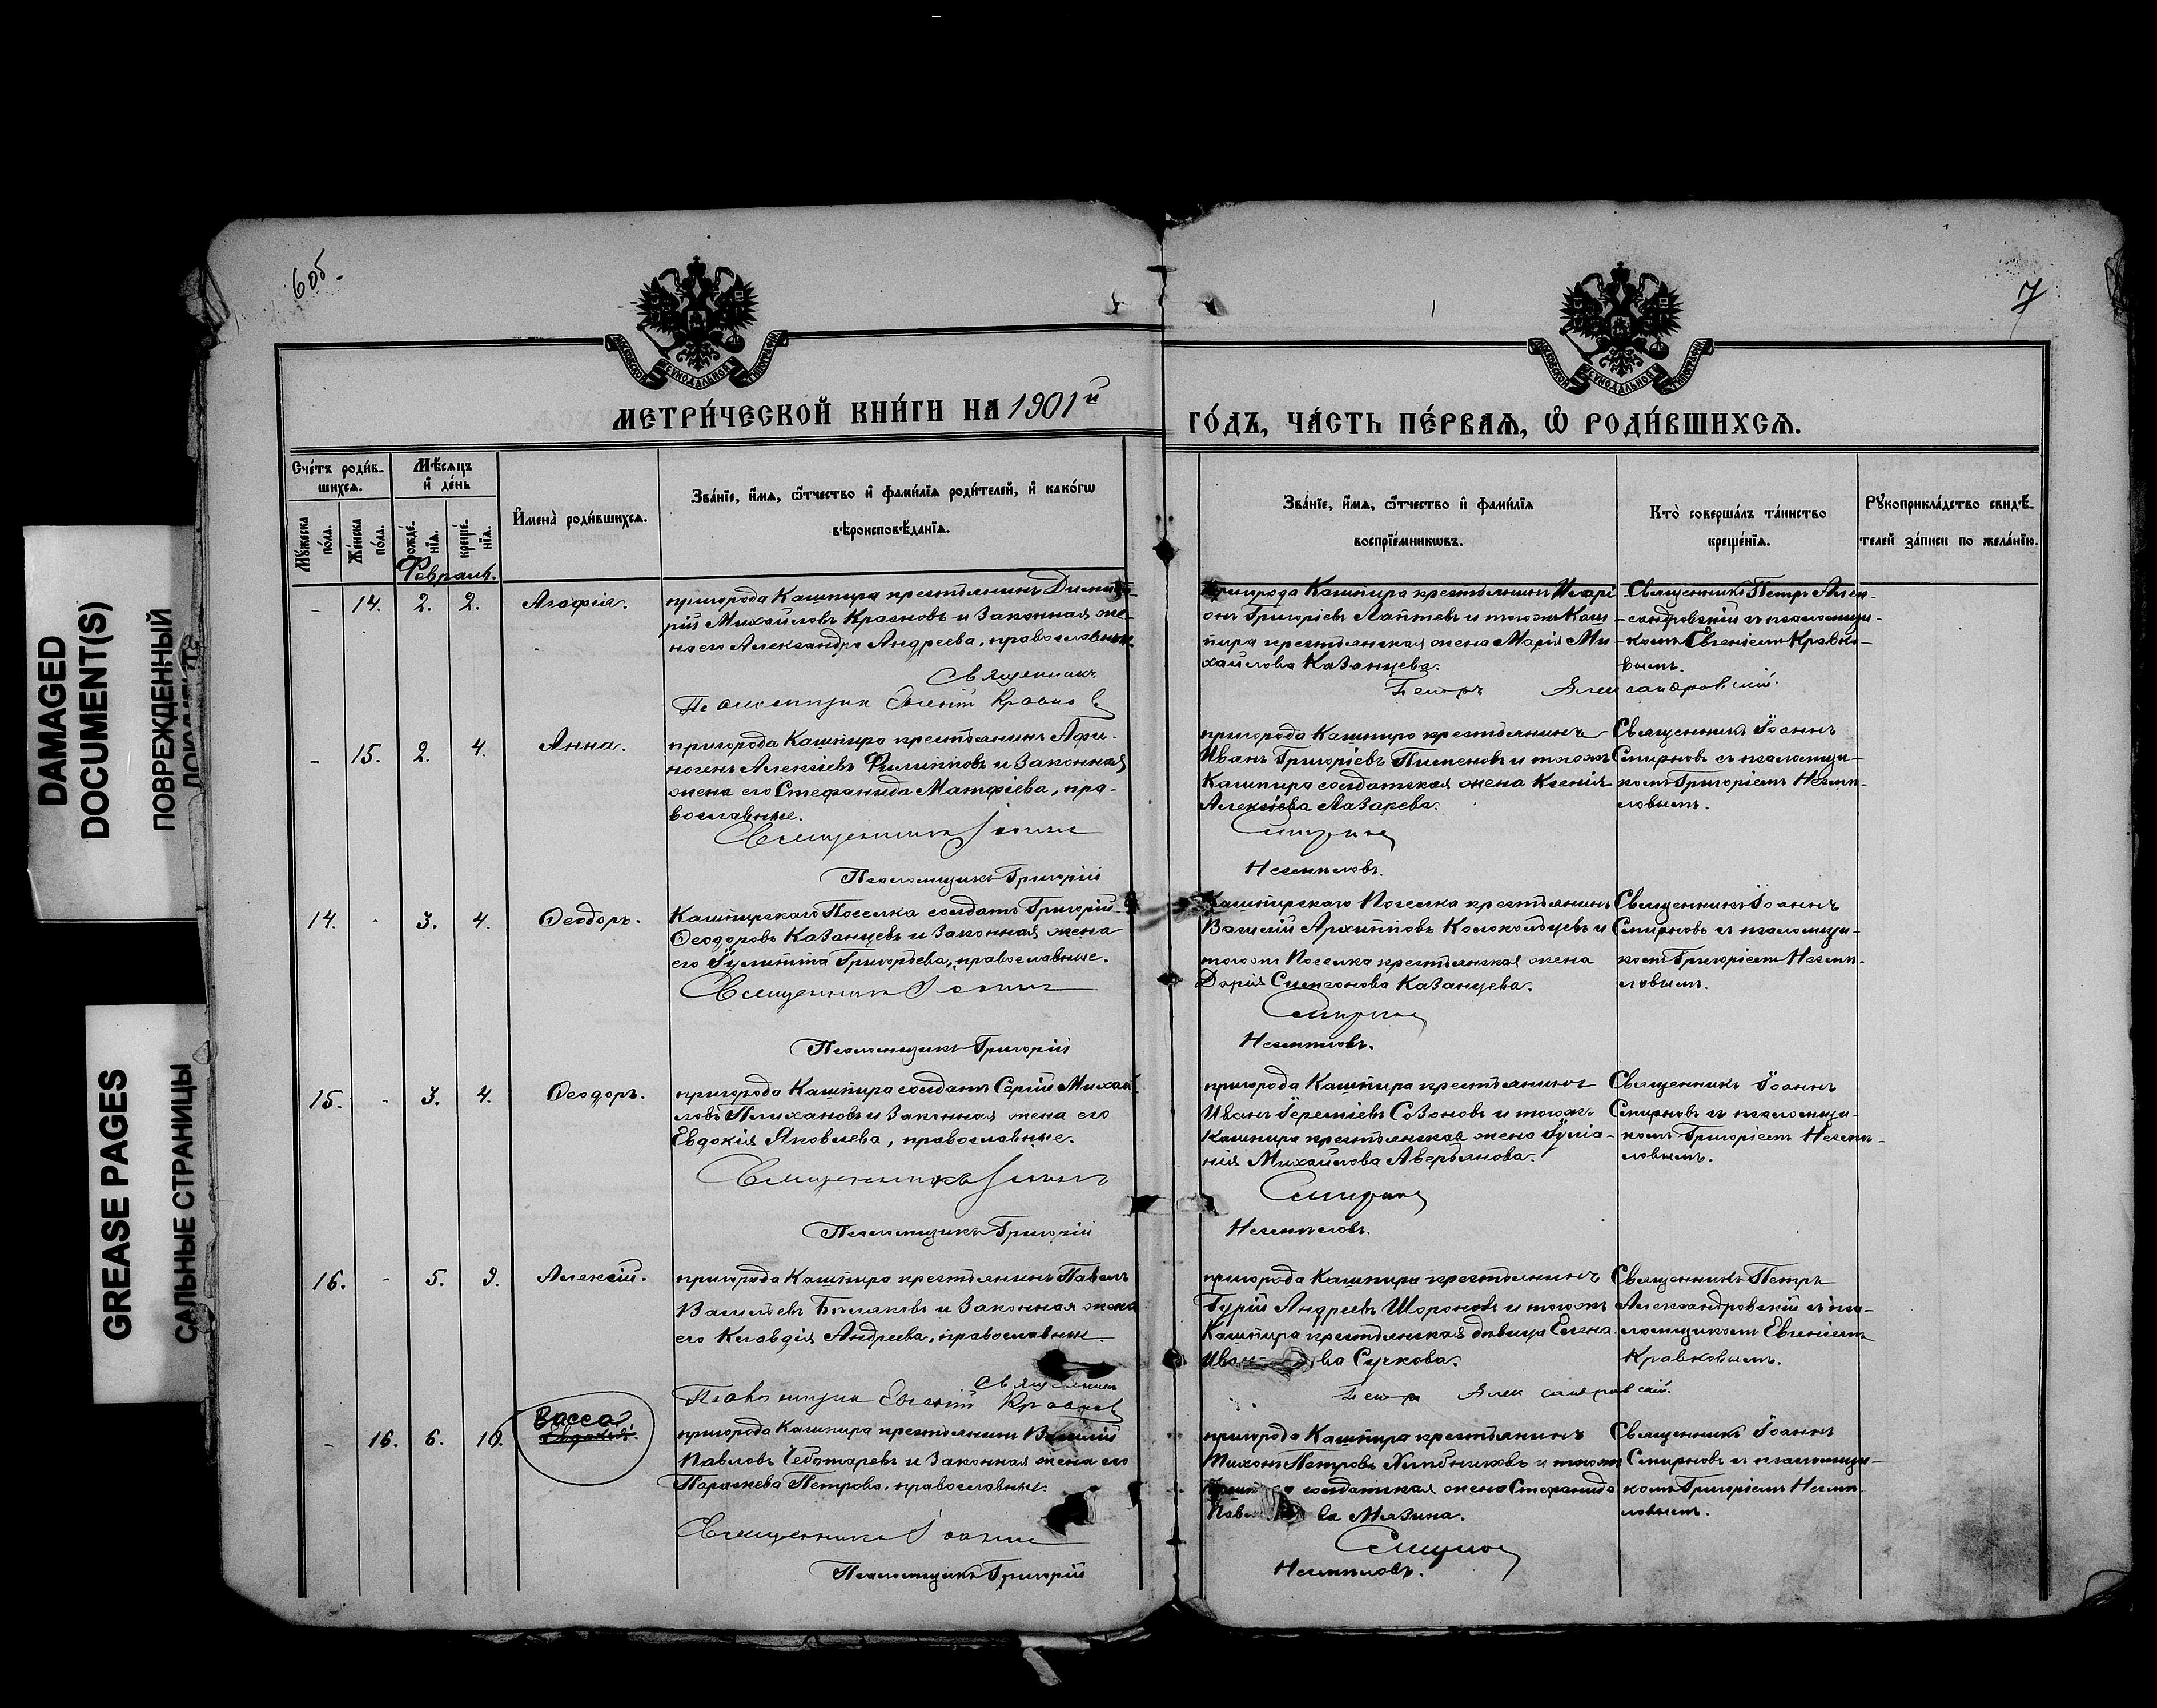 6 об.
7
МЕТРИ́ЧЕСКОЙ КНИ́ГИ НА 1901й
ГО́ДЪ, ЧА́СТЬ ПЕ́РВАЯ, Ѡ РОДИ́ВШИХСЯ.
Сче́тъ роди́в-
шихся.
Мѣ́сяцъ
и де́нь
Му́жеска по́ла.
Же́нска по́ла.
рожде́нїя.
креще́нїя.
И҆мена̀ роди́вшихся.
Зва́нїе, и҆́мя, ѻ҆́тчество и҆ фами́лїя роди́телей, и҆ како́гѡ
вѣроисповѣ́данїя.
Зва́нїе, и҆́мя, ѻ҆́тчество и҆ фами́лїя
воспрїе́мникѡвъ.
Кто̀ соверша́лъ та́инство
креще́нїя.
Рꙋкоприкла́дство свидѣ́-
телей за́писи по жела́нїю.
Февраль.
- 14. 2. 2. Агафія.
пригорода Кашпира крестьянинъ Димит-
рій Михайловъ Красновъ и законная же-
на его Александра Андреева, православные.
Священникъ
Псаломщик Евгеній Кравков
пригорода Кашпира крестьянинъ Илари-
онъ Григоріевъ Лаптевъ и тогож Каш-
пира крестьянская жена Марія Ми-
хайлова Казанцева.
Петръ Александровскій.
Священникъ Петръ Алек-
сандровскій съ псаломщи-
комъ Евгеніемъ Кравко-
вымъ.
- 15. 2. 4. Анна.
пригорода Кашпира крестьянинъ Афи-
ногенъ Алексіевъ Филипповъ и законная
жена его Стефанида Матфіева, пра-
вославные.
Священникъ Іоаннъ
Псаломщикъ Григорій
пригорода Кашпира крестьянинъ
Иванъ Григоріевъ Пименовъ и тогож
Кашпира солдатская жена Ксенія
Алексіева Лазарева.
Смирнов
Несмѣловъ.
Священникъ Іоаннъ
Смирновъ съ псаломщи-
комъ Григоріемъ Несмѣ-
ловымъ.
14. - 3. 4. Ѳеодоръ.
Кашпирскаго Поселка солдатъ Григорій
Ѳеодоровъ Казанцевъ и законная жена
его Іулитта Григорьева, православные.
Священникъ Іоаннъ
Псаломщикъ Григорій
Кашпирскаго Поселка крестьянинъ
Василій Архиповъ Колокольцевъ и
тогож Поселка крестьянская жена
Дарія Симеонова Казанцева.
Смирнов
Несмѣловъ.
Священникъ Іоаннъ
Смирновъ съ псаломщи-
комъ Григоріемъ Несмѣ-
ловымъ.
15. - 3. 4. Ѳеодоръ.
пригорода Кашпира солдатъ Сергій Михаи-
ловъ Плихановъ и законная жена его
Евдокія Яковлева, православные.
Священникъ Іоаннъ
Псаломщикъ Григорій
пригорода Кашпира крестьянинъ
Иванъ Іереміевъ Созоновъ и тогож
Кашпира крестьянская жена Іуліа-
нія Михайлова Аверьянова.
Смирнов
Несмѣловъ.
Священникъ Іоаннъ
Смирновъ съ псаломщи-
комъ Григоріемъ Несмѣ-
ловымъ.
16. - 5. 9. Алексій.
пригорода Кашпира крестьянинъ Павелъ
Васильевъ Бѣляковъ и законная жена
его Клавдія Андреева, православные
Священник
Псаломщик Евгеній Кравков
пригорода Кашпира крестьянинъ
Гурій Андреевъ Шороновъ и тогож
Кашпира крестьянская дѣвица Елена
Ива ва Сучкова.
Петр Александровскій.
Священникъ Петръ
Александровскій съ пса-
ломщикомъ Евгеніемъ
Кравковымъ.
- 16. 6. 10. Васса
Евдокія.
пригорода Кашпира крестьянинъ Василій
Павловъ Чеботаревъ и законная жена его
Параскева Петрова, православные.
Священникъ Іоаннъ
Псаломщикъ Григорій
пригорода Кашпира крестьянинъ
Тихонъ Петровъ Хлѣбниковъ и тогож
Кашпира солдатская жена Стефанида
Пав ва Мязина.
Смирнов
Несмѣловъ.
Священникъ Іоаннъ
Смирновъ съ псаломщи-
комъ Григоріемъ Несмѣ-
ловымъ.
DAMAGED
DOCUMENT(S)
ПОВРЕЖДЕННЫЙ
ДОКУМЕНТ
GREASE PAGES
САЛЬНЫЕ СТРАНИЦЫ
МОСКОВСКОЙ СѴНОДАЛЬНОЙ ТИПОГРАФІИ
МОСКОВСКОЙ СѴНОДАЛЬНОЙ ТИПОГРАФІИ